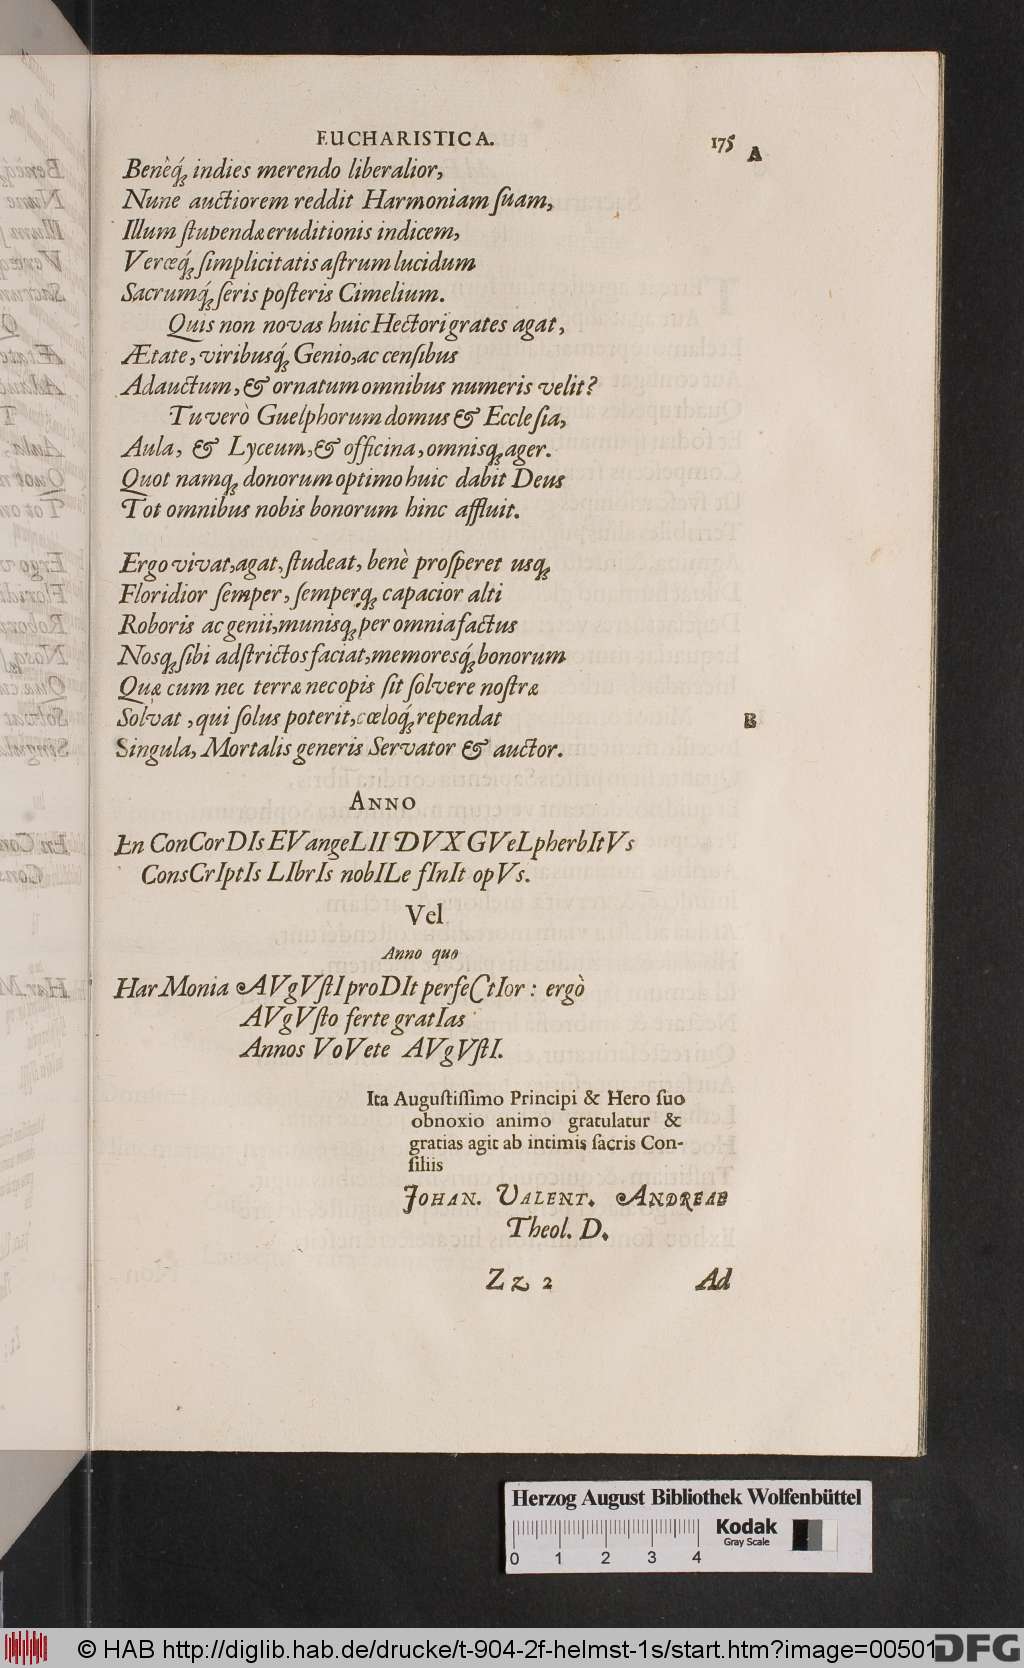 EUCHARISTICA. 175
A
Benèq́ꝫ indies merendo liberalior,
Nune auctiorem reddit Harmoniam ſuam,
Illum ſtupendæ eruditionis indicem,
Veræq́ꝫ ſimplicitatis aſtrum lucidum
Sacrumq́ꝫ ſeris poſteris Cimelium.
Quis non novas huic Hectori grates agat,
Ætate, viribusq́ꝫ Genio, ac cenſibus
Adauctum, & ornatum omnibus numeris velit?
Tu verò Guelphorum domus & Eccleſia,
Aula, & Lyceum, & officina, omnisqꝫ ager.
Quot namqꝫ donorum optimo huic dabit Deus
Tot omnibus nobis bonorum hinc affluit.
Ergo vivat, agat, ſtudeat, benè proſperet usqꝫ
Floridior ſemper, ſemperqꝫ capacior alti
Roboris ac genii, munisqꝫ per omnia factus
Nosqꝫ ſibi adſtrictos faciat, memoresq́ꝫ bonorum
Quæ cum nec terræ nec opis ſit ſolvere noſtræ
Solvat, qui ſolus poterit, cœloq́ꝫ rependat
B
Singula, Mortalis generis Servator & auctor.
ANNO
En ConCorDIs EVangeLII DVX GVeLpherbItVs
ConsCrIptIs LIbrIs nobILe fInIt opVs.
Vel
Anno quo
HarMonia AVgVſtI proDIt perfeCtIor: ergò
AVgVſto ferte gratIas
Annos VoVete AVgVſtI.
Ita Auguſtiſſimo Principi & Hero ſuo
obnoxio animo gratulatur &
gratias agit ab intimis ſacris Con-
ſiliis
JOHAN. VALENT. ANDREAE
Theol. D.
Zz 2 Ad
Herzog August Bibliothek Wolfenbüttel
Kodak
Gray Scale
0 1 2 3 4
© HAB http://diglib.hab.de/drucke/t-904-2f-helmst-1s/start.htm?image=00501
DFG